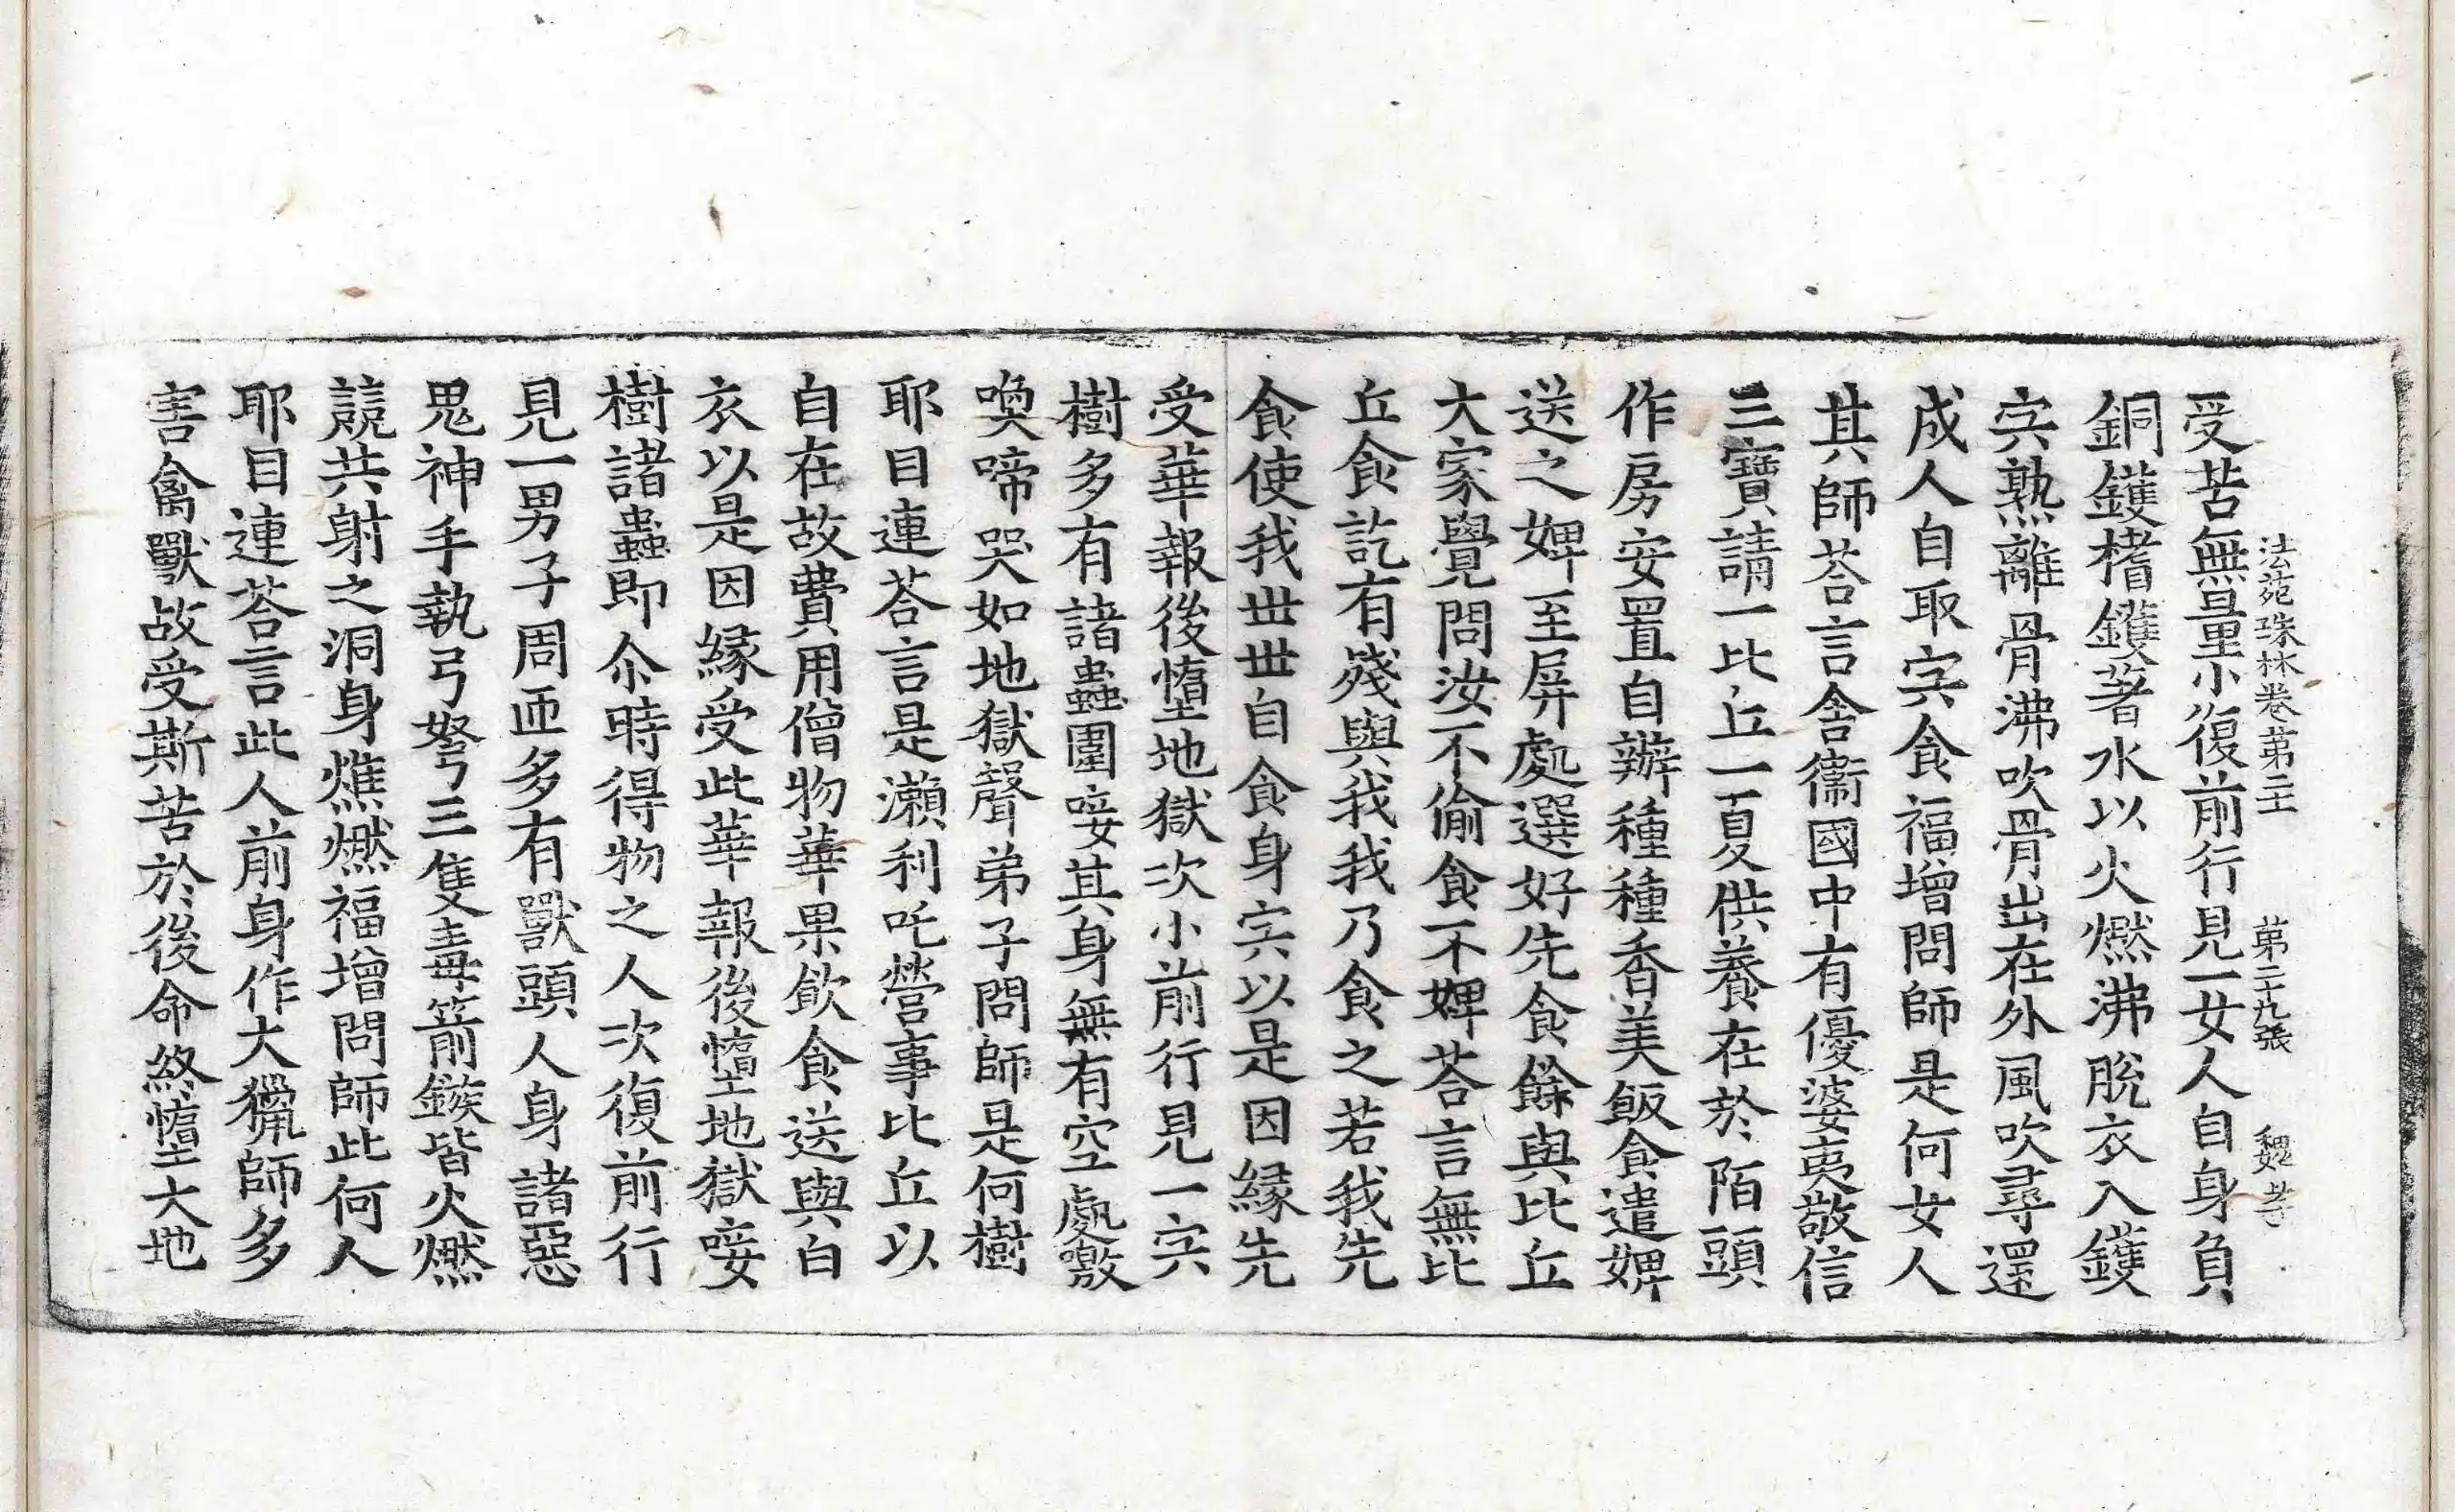 法苑珠林卷第二十 第二十九張 魏等
受苦無量小復前行見一女人自身負
銅鑊榰鑊著水以火燃沸脫衣入鑊
宍熟離骨沸吹骨出在外風吹尋還
成人自取宍食福增問師是何女人
其師荅言舍衞國中有優婆夷敬信
三寶請一比丘一夏供養在於陌頭
作房安置自辦種種香美飯食遣婢
送之婢至屏處選好先食餘與比丘
大家覺問汝不偷食不婢荅言無比
丘食訖有殘與我我乃食之若我先
食使我丗丗自食身宍以是因緣先
受華報後墮地獄次小前行見一宍
樹多有諸蟲圍唼其身無有空處噭
喚啼哭如地獄聲弟子問師是何樹
耶目連荅言是瀬利吒營事比丘以
自在故費用僧物華果飲食送與白
衣以是因緣受此華報後墮地獄唼
樹諸蟲即尒時得物之人次復前行
見一男子周匝多有獸頭人身諸惡
鬼神手執弓弩三隻毒箭鏃皆火燃
競共射之洞身燋燃福增問師此何人
耶目連荅言此人前身作大獵師多
害禽獸故受斯苦於後命終墮大地